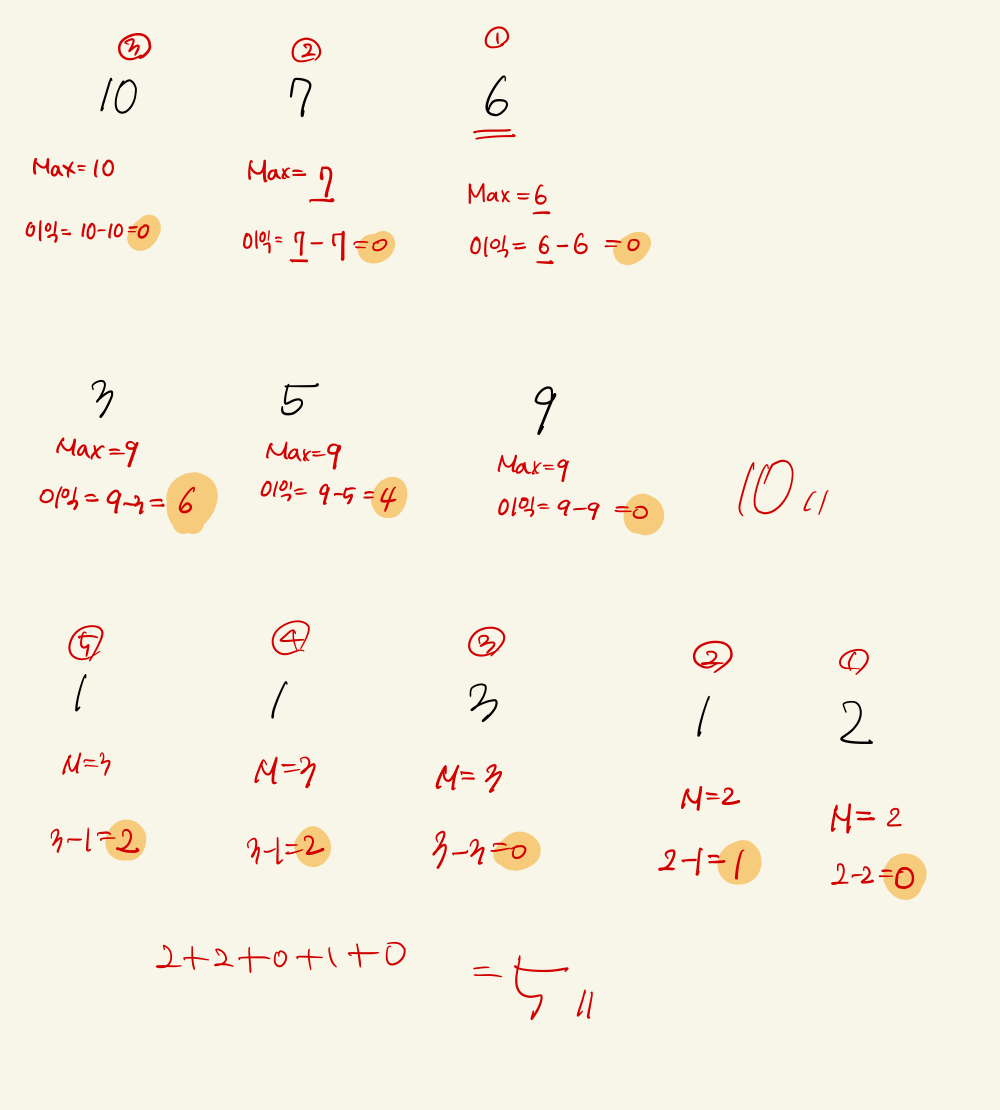 ③ ② ①
10 7 6
Max=10 Max=7 Max=6
이익=10-10=0 이익=7-7=0 이익=6-6=0
3 5 9
Max=9 Max=9 Max=9
이익=9-3=6 이익=9-5=4 이익=9-9=0
10〃
⑤ ④ ③ ② ①
1 1 3 1 2
M=3 M=3 M=3 M=2 M=2
3-1=2 3-1=2 3-3=0 2-1=1 2-2=0
2+2+0+1+0 =5〃